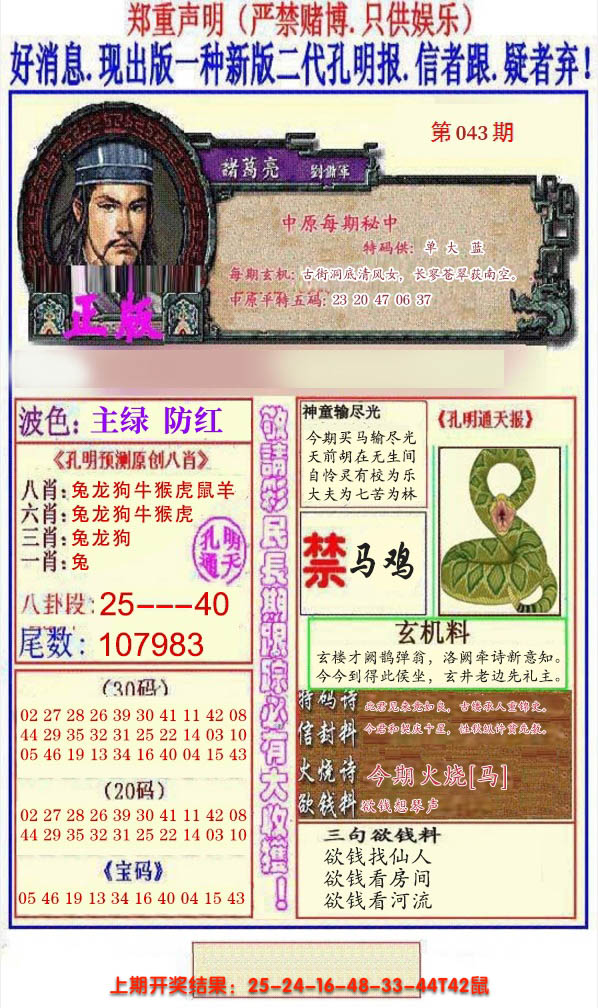 郑重声明（严禁赌博.只供娱乐）
好消息.现出版一种新版二代孔明报.信者跟.疑者弃！
第043期
諸葛亮 劉備軍
中原每期秘中
特码供：单 大 蓝
每期玄机：古街洞底清风女，长寥苍翠荻南空。
中原平特五码：23 20 47 06 37
正版
波色：主绿 防红
《孔明预测原创八肖》
八肖：兔龙狗牛猴虎鼠羊
六肖：兔龙狗牛猴虎
三肖：兔龙狗
一肖：兔
孔明通天
八卦段：25---40
尾数：107983
（30码）
02 27 28 26 39 30 41 11 42 08
44 29 35 32 31 25 22 14 03 10
05 46 19 13 34 16 40 04 15 43
（20码）
02 27 28 26 39 30 41 11 42 08
44 29 35 32 31 25 22 14 03 10
《宝码》
05 46 19 13 34 16 40 04 15 43
敬請彩民長期跟踪必有大收獲！
神童输尽光
今期买马输尽光
天前胡在无生间
自怜灵有校为乐
大夫为七苦为林
《孔明通天报》
禁马鸡
玄机料
玄楼才阙鹊弹翁，洛阙牵诗新意知。
今今到得此侯坐，玄井老边先礼主。
特码诗
此君见来意如良，古缘承人重锦史。
信封料
今君和契庆十星，性秋纵诗赏无数。
火烧诗 今期火烧[马]
欲钱料 欲钱想琴声
三句欲钱料
欲钱找仙人
欲钱看房间
欲钱看河流
上期开奖结果：25-24-16-48-33-44T42鼠